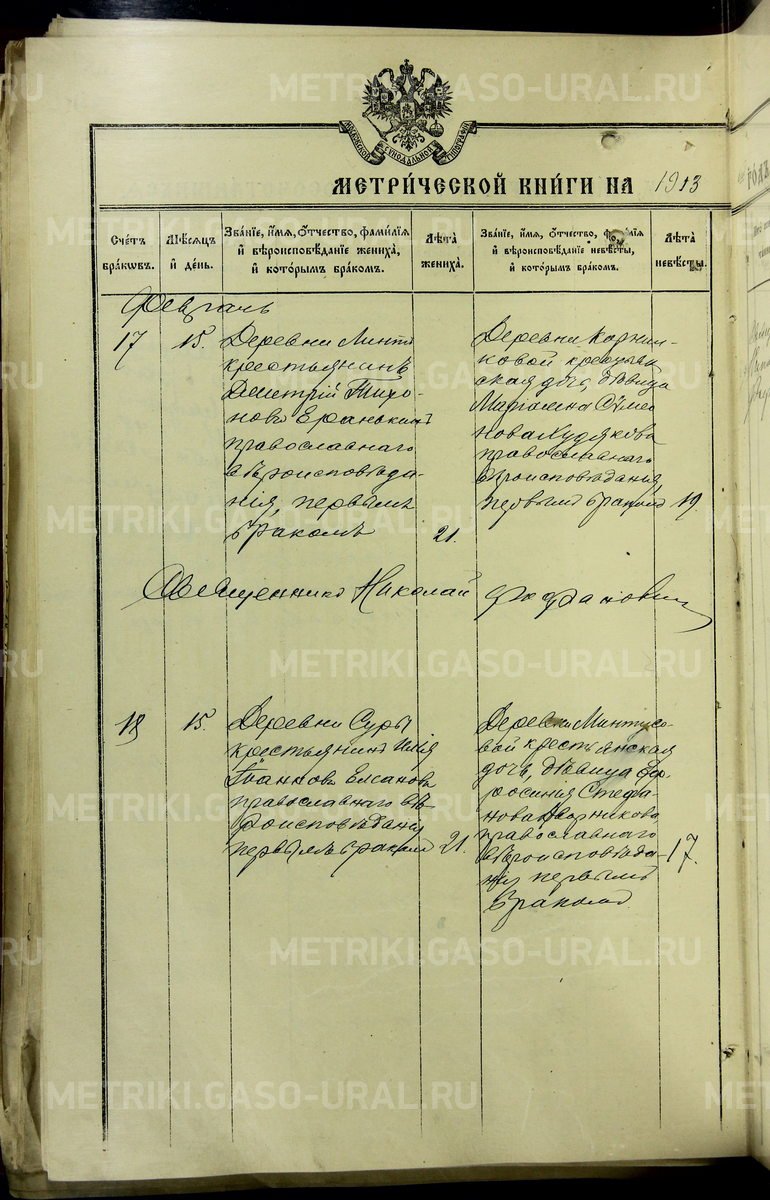 METRIKI.GASO-URAL.RU
МОСКОВСКОЙ СѴНОДАЛЬНОЙ ТИПОГРАФІИ
МЕТРИ́ЧЕСКОЙ КНИ́ГИ НА 1913
Сче́тъ бра́ковъ.
Мѣ́сяцъ и҆ де́нь.
Зва́нїе, и҆́мя, ѻ҆́тчество, фами́лїя
и҆ вѣроисповѣ́данїе жениха̀,
и҆ кото́рымъ бра́комъ.
Лѣ́та жениха̀.
Зва́нїе, и҆́мя, ѻ҆́тчество, фами́лїя
и҆ вѣроисповѣ́данїе невѣ́сты,
и҆ кото́рымъ бра́комъ.
Лѣ́та невѣ́сты.
Февраль
17
15.
Деревни
крестьянинъ
Дмитрій Тихо-
новъ
православнаго
вѣроисповѣда-
нія, первымъ
бракомъ
21.
Деревни Корнил-
ковой крестьян
ская дочь дѣвица
Маріамна Сѵмео
нова Худякова
православнаго
вѣроисповѣданія,
первымъ бракомъ
19
Священникъ Николай
18
15.
Деревни Суры
крестьянинъ Илія
православнаго вѣ
роисповѣданія
первымъ бракомъ
21.
Деревни Минтусо
вой крестьянская
дочь, дѣвица Еф-
росинія Стефа-
нова Дворникова
православнаго
вѣроисповѣда-
нія первымъ
бракомъ
17.